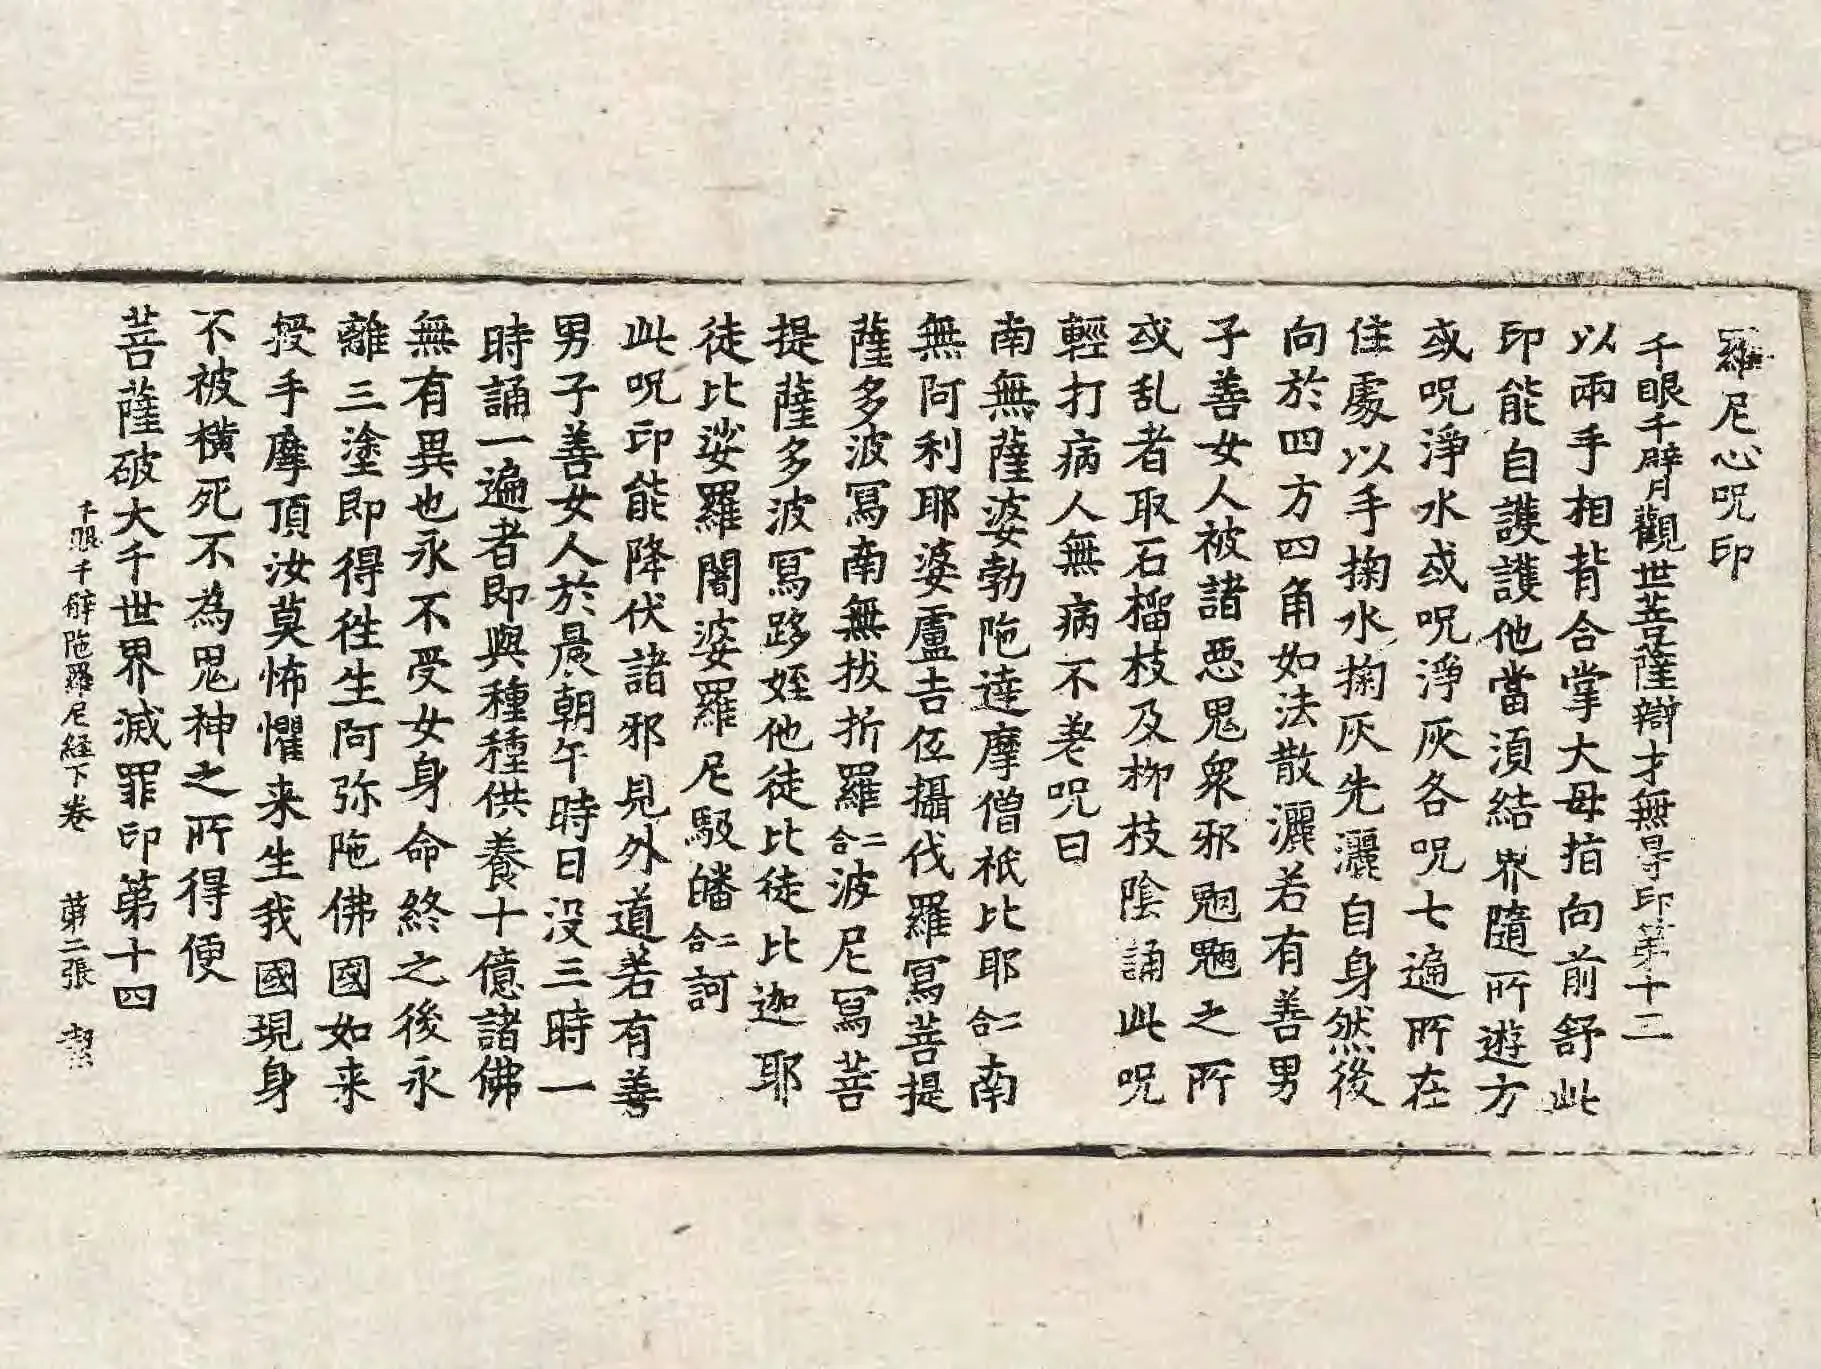 羅尼心呪印
千眼千臂觀世菩薩辯才無㝵印第十二
以兩手相背合掌大母指向前舒此
印能自護護他當須結界隨所遊方
或呪淨水或呪淨灰各呪七遍所在
住處以手掬水掬灰先灑自身然後
向於四方四角如法散灑若有善男
子善女人被諸惡鬼衆邪魍魎之所
或乱者取石榴枝及柳枝陰誦此呪
輕打病人無病不差呪曰
南無薩婆勃陁達摩僧祇比耶二合南
無阿利耶婆盧吉伭攝伐羅寫菩提
薩多波寫南無拔折羅二合波尼寫菩
提薩多波寫跢姪他徒比徒比迦耶
徒比娑羅闍婆羅尼馺皤二合訶
此呪印能降伏諸邪見外道若有善
男子善女人於晨朝午時日没三時一
時誦一遍者即與種種供養十億諸佛
無有異也永不受女身命終之後永
離三塗即得徃生阿弥陁佛國如来
授手摩頂汝莫怖懼来生我國現身
不被横死不為鬼神之所得便
菩薩破大千世界滅罪印第十四
千眼千臂陁羅尼経下卷 第二張